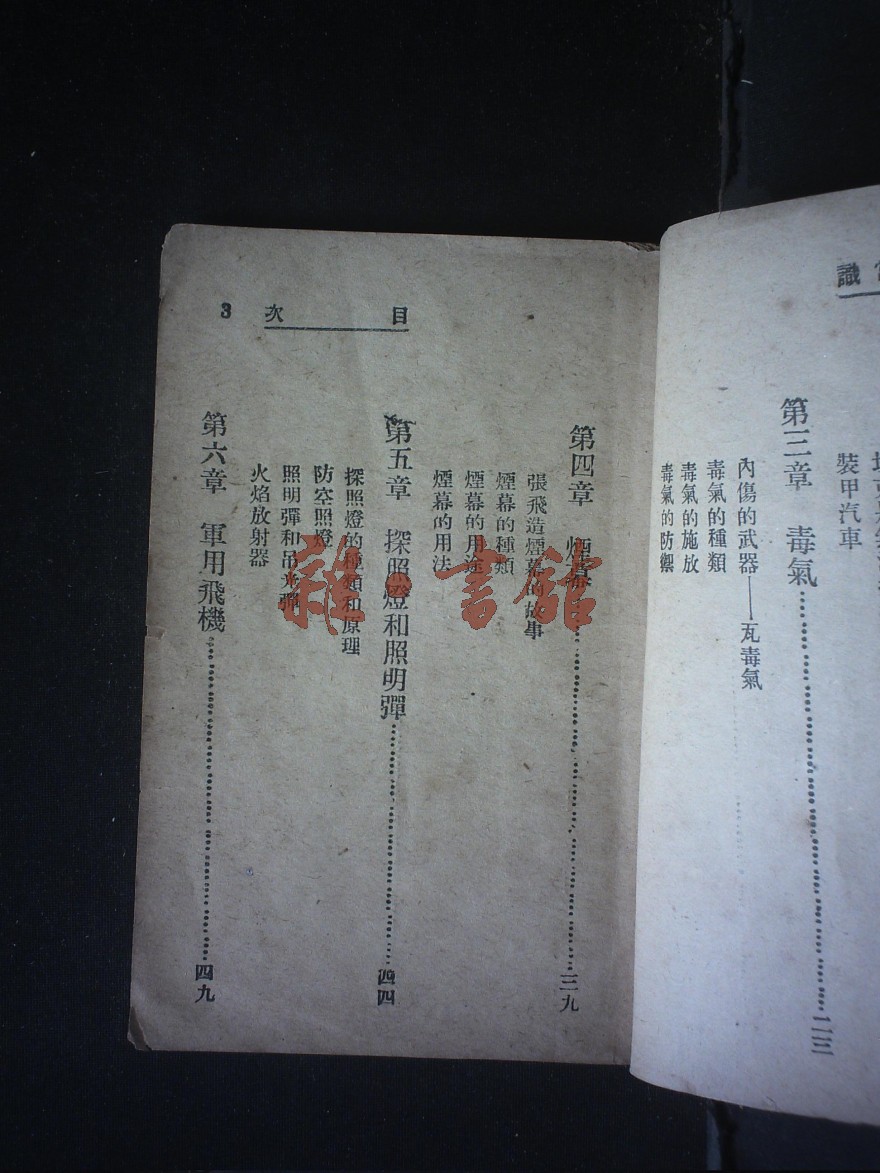 識
裝甲汽車
第三章　毒氣…………二三
內傷的武器——瓦毒氣
毒氣的種類
毒氣的施放
毒氣的防禦
目次 3
第四章　煙幕…………三九
張飛造煙幕的故事
煙幕的種類
煙幕的用途
煙幕的用法
第五章　探照燈和照明彈…………四四
探照燈的種類和原理
防空照燈
照明彈和吊光彈
火焰放射器
第六章　軍用飛機…………四九
雜·書館